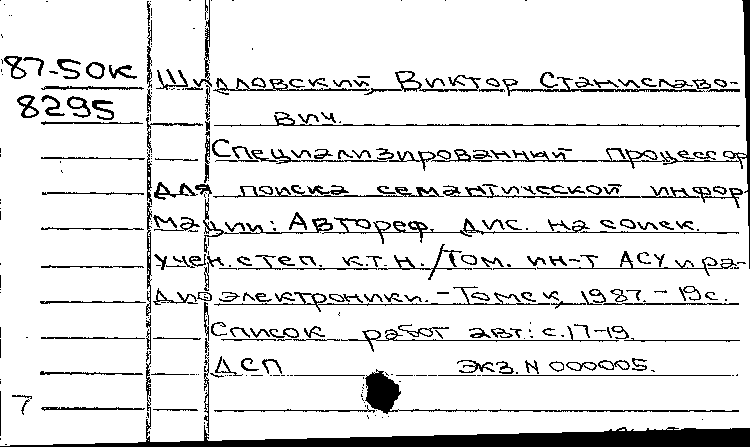 87-50К Шидловский, Виктор Станиславо-
8295 вич.
Специализированный процессор
для поиска семантической инфор
мации: Автореф. дис. на соиск.
учен. степ. к.т.н. / Том. ин-т АСУ и ра-
диоэлектроники. - Томск, 1987. - 19 с.
Список работ авт.: с. 17-19.
ДСП Экз. N 000005.
7